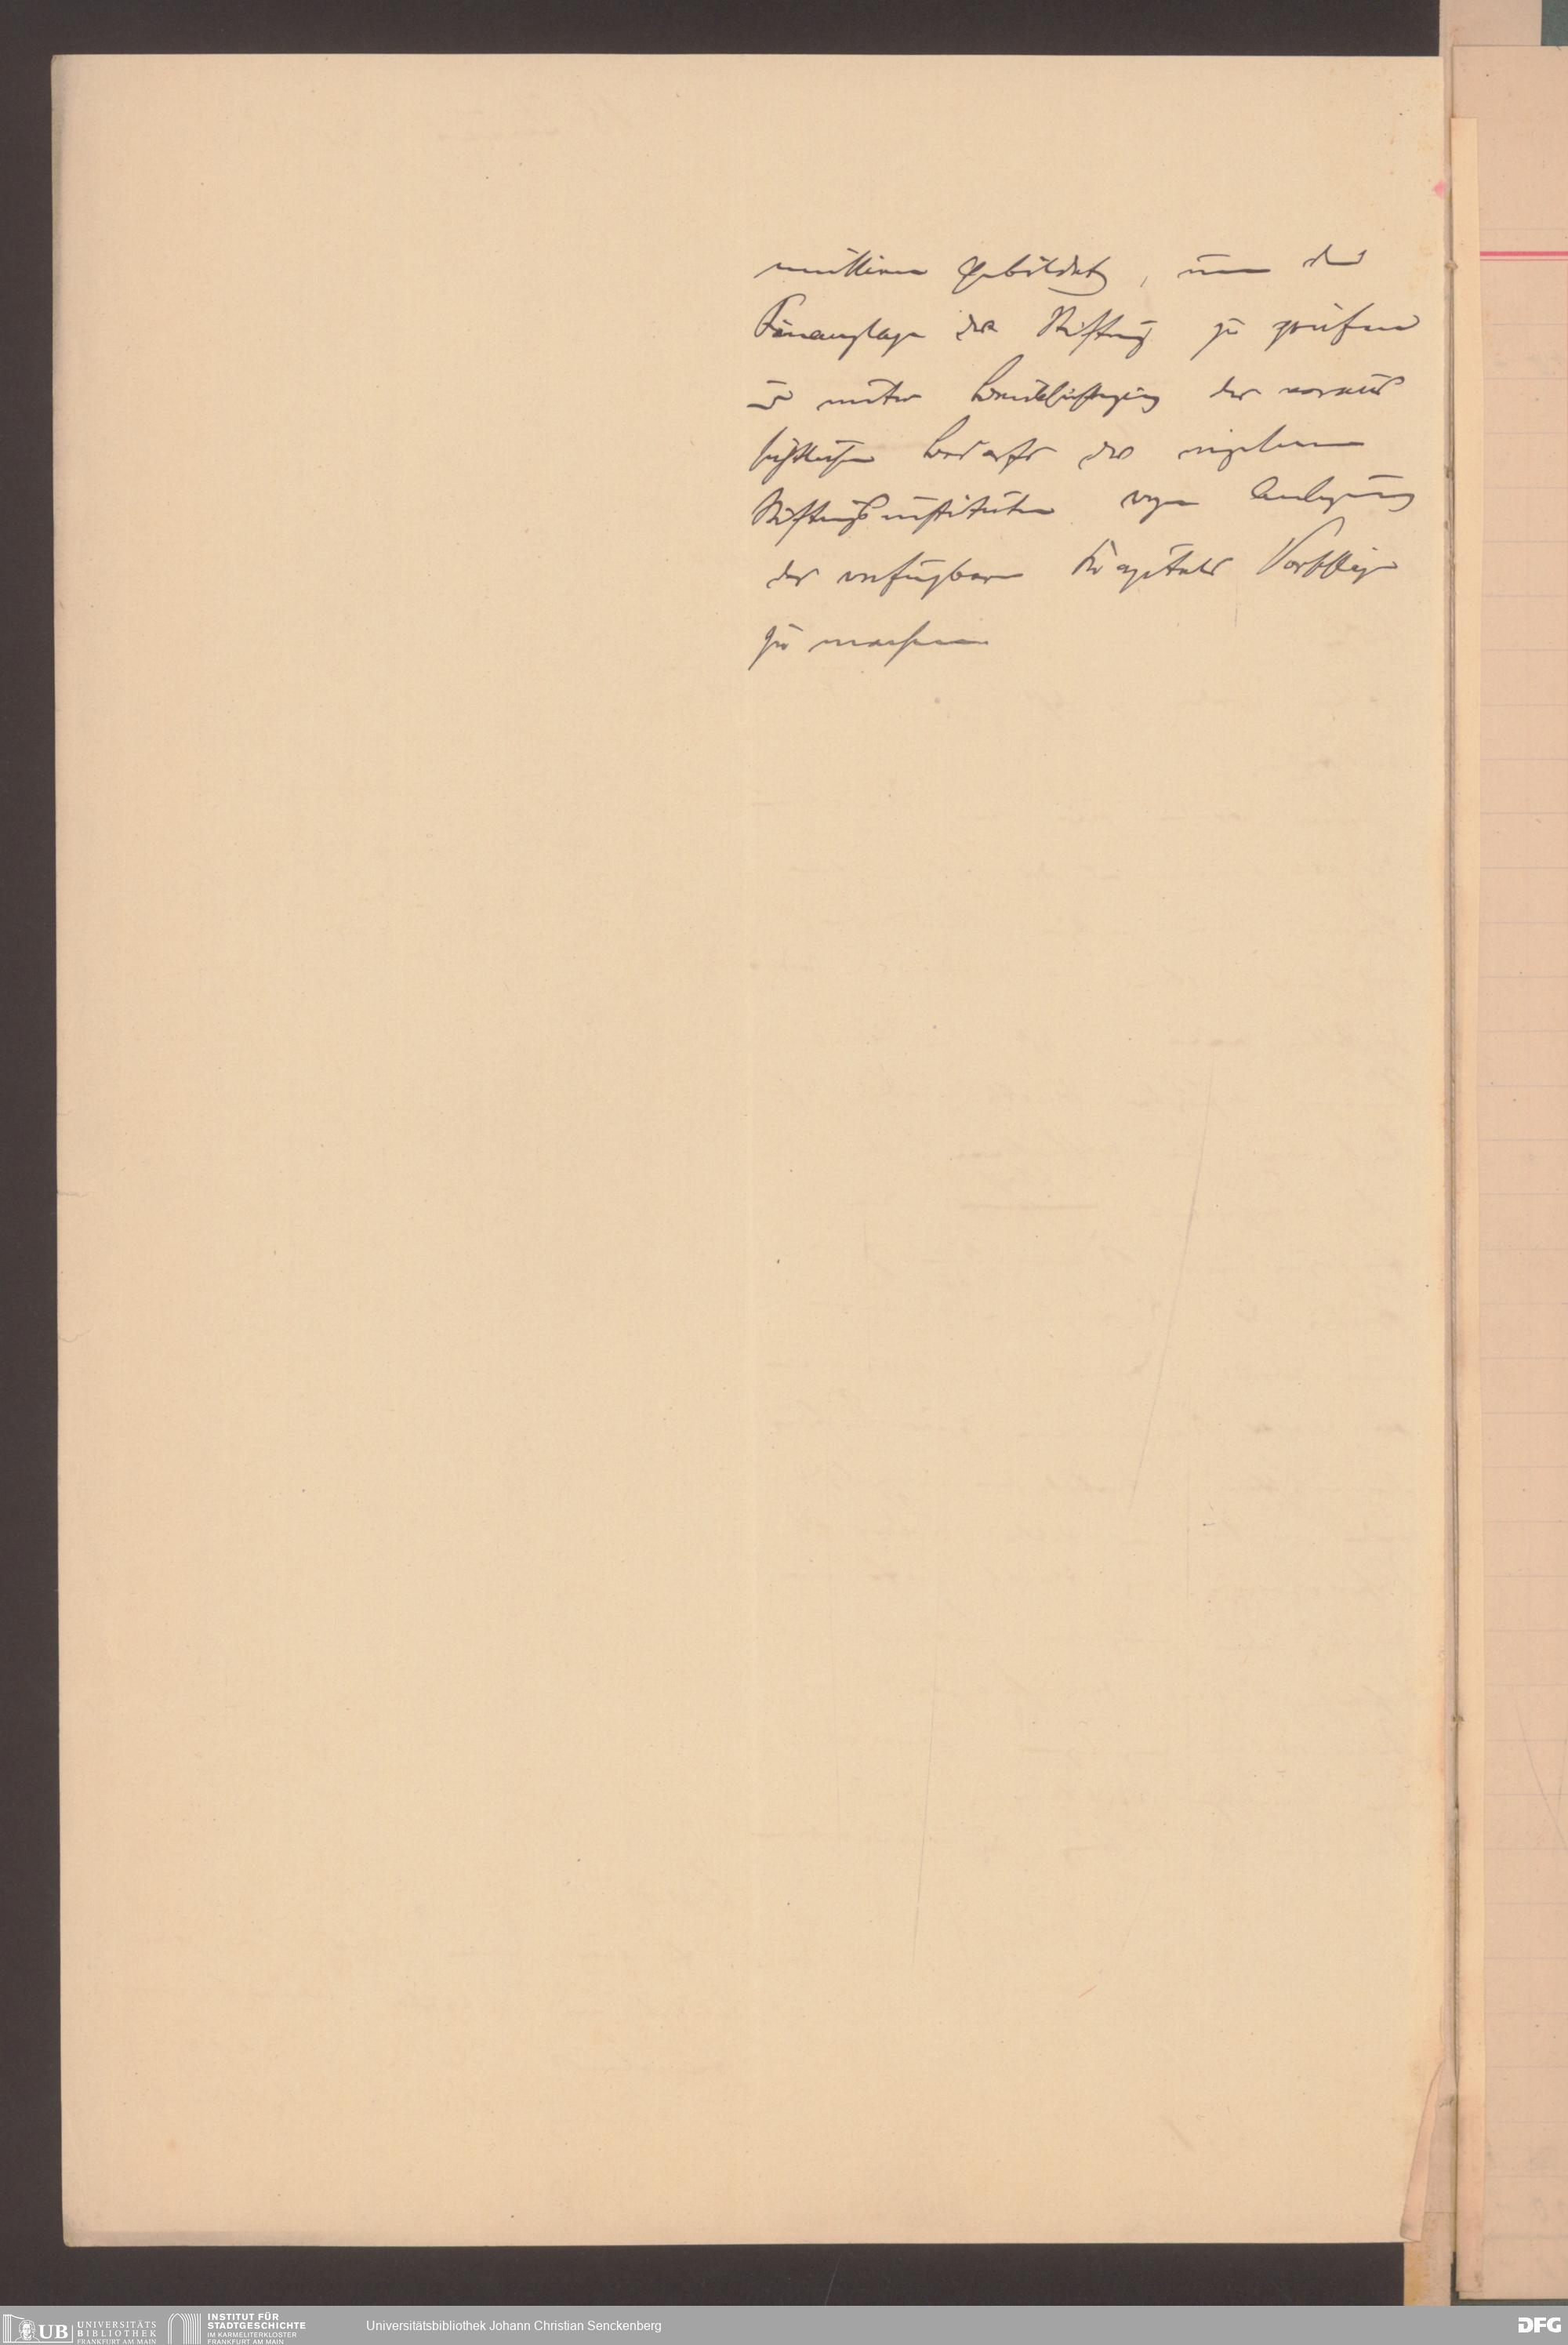 mission gebildet, um die
Finanzlage der Stiftung zu prüfen
u unter Berücksichtigung des voraus
sichtlichen Bedarfs der einzelnen
Stiftungsinstitute wegen Anlegung
des verfügbaren Kapitals Vorschläge
zu machen
UB UNIVERSITÄTS
BIBLIOTHEK
FRANKFURT AM MAIN
INSTITUT FÜR
STADTGESCHICHTE
IM KARMELITERKLOSTER
FRANKFURT AM MAIN
Universitätsbibliothek Johann Christian Senckenberg
DFG